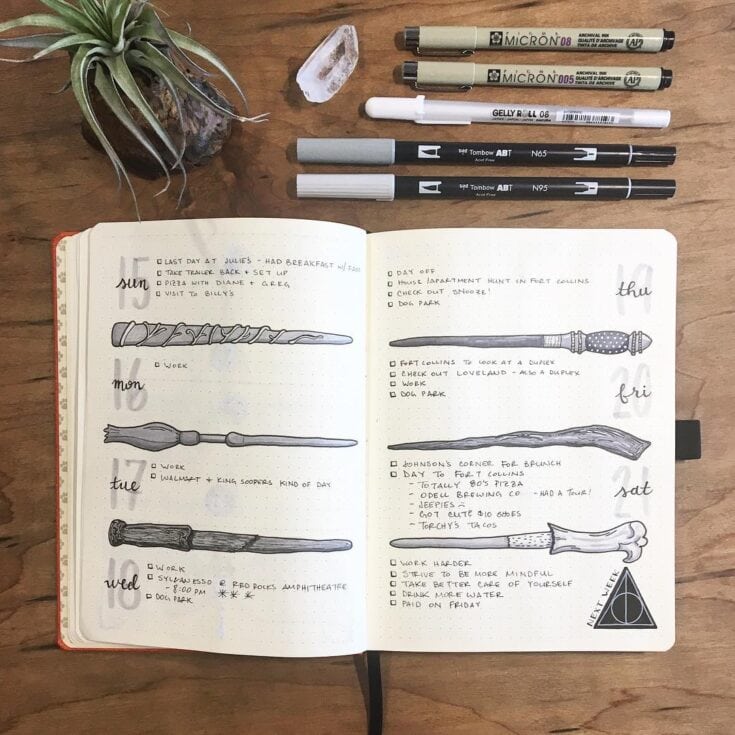 PIGMA MICRON 08 ARCHIVAL INK
QUALITÉ D'ARCHIVAGE
TINTA DE ARCHIVE
PIGMA MICRON 005 ARCHIVAL INK
QUALITÉ D'ARCHIVAGE
TINTA DE ARCHIVE
GELLY ROLL 08
Tombow ABT N65
Acid Free
Tombow ABT N95
Acid Free
15
sun
LAST DAY AT JULIE'S - HAD BREAKFAST W/
TAKE TRAILER BACK + SET UP
PIZZA WITH DIANE + GREG
VISIT TO BILLY'S
16
mon
WORK
17
tue
WORK
WALMART + KING SOOPERS KIND OF DAY
18
wed
WORK
SYLVAN ESSO @ RED ROCKS AMPHITHEATRE
- 8:00 PM
DOG PARK
19
thu
DAY OFF
HOUSE/APARTMENT HUNT IN FORT COLLINS
CHECK OUT SNOOZE!
DOG PARK
20
fri
FORT COLLINS TO LOOK AT A DUPLEX
CHECK OUT LOVELAND - ALSO A DUPLEX
WORK
DOG PARK
21
sat
JOHNSON'S CORNER FOR BRUNCH
DAY TO FORT COLLINS
- TOTALLY 80'S PIZZA
- ODELL BREWING CO - HAD A TOUR!
- JEEPIES
- GOT CUTE $10 SHOES
- TORCHY'S TACOS
WORK HARDER
STRIVE TO BE MORE MINDFUL
TAKE BETTER CARE OF YOURSELF
DRINK MORE WATER
PAID ON FRIDAY
NEXT WEEK